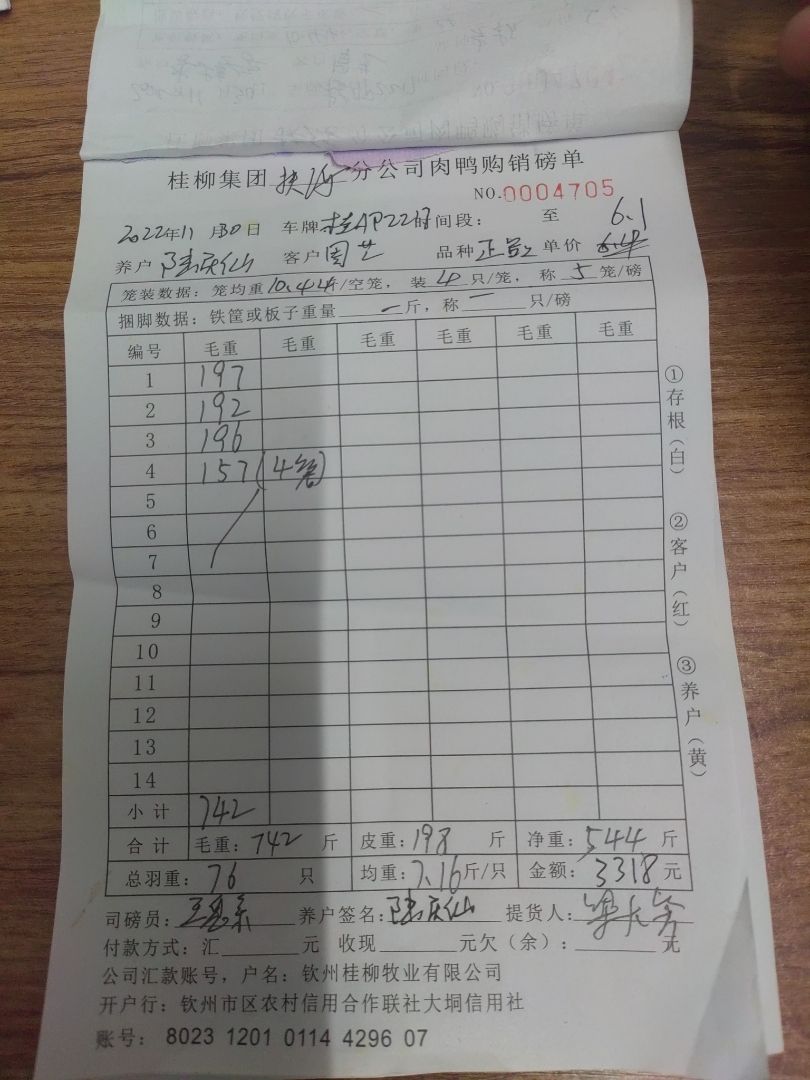 桂柳集团 分公司肉鸭购销磅单
NO.0004705
2022年11月30日 车牌 时间段： 至 6.1
养户 陆庆仙 客户 周艺 品种 单价 6.4
笼装数据：笼均重10.44斤/空笼，装4只/笼，称5笼/磅
捆脚数据：铁筐或板子重量一斤，称一只/磅
编号 毛重 毛重 毛重 毛重 毛重 毛重
1 197
2 192
3 196
4 157(4笼)
5
6
7
8
9
10
11
12
13
14
小计 742
合计 毛重：742斤 皮重：198斤 净重：544斤
总羽重：76只 均重：7.16斤/只 金额：3318元
司磅员： 养户签名：陆庆仙 提货人：
付款方式：汇 元 收现 元欠（余）： 元
公司汇款账号，户名：钦州桂柳牧业有限公司
开户行：钦州市区农村信用合作联社大垌信用社
账号：8023 1201 0114 4296 07
①存根（白）
②客户（红）
③养户（黄）